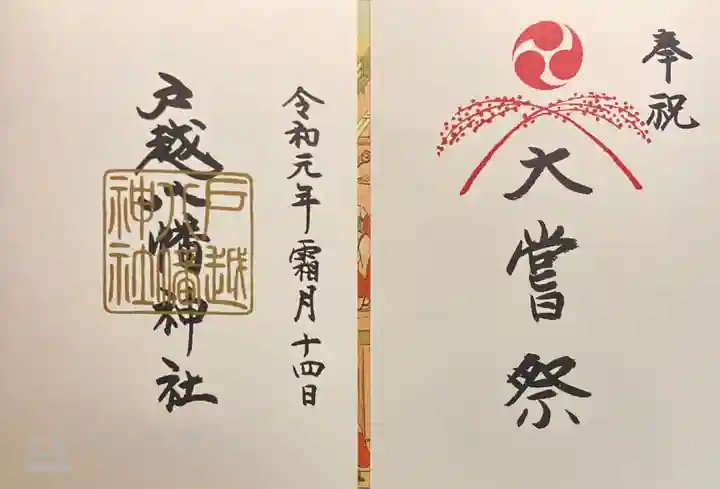 奉祝
大嘗祭
令和元年霜月十四日
戸越八幡神社
戸越
八幡
神社